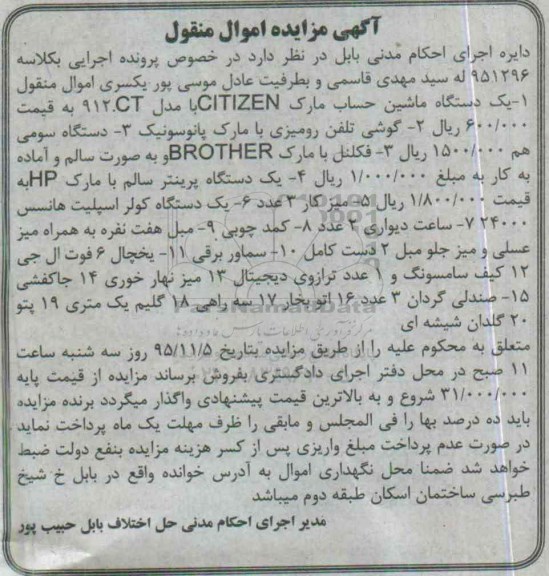 آگهی مزایده اموال منقول
دایره اجرای احکام مدنی بابل در نظر دارد در خصوص پرونده اجرایی بکلاسه
۹۵۱۲۹۶ له سید مهدی قاسمی و بطرفیت عادل موسی پور یکسری اموال منقول
۱-یک دستگاه ماشین حساب مارک CITIZENبا مدل ۹۱۲.CT به قیمت
۶۰۰/۰۰۰ ریال ۲- گوشی تلفن رومیزی با مارک پانوسونیک ۳- دستگاه سومی
هم ۱۵۰۰/۰۰۰ ریال ۳- فکلنل با مارک BROTHERو به صورت سالم و آماده
به کار به مبلغ ۱/۰۰۰/۰۰۰ ریال ۴- یک دستگاه پرینتر سالم با مارک HPبه
قیمت ۱/۸۰۰/۰۰۰ ریال ۵- میز کار ۳ عدد ۶- یک دستگاه کولر اسپلیت هانسس
۲۴۰۰۰ ۷- ساعت دیواری ۲ عدد ۸- کمد چوبی ۹- مبل هفت نفره به همراه میز
عسلی و میز جلو مبل ۲ دست کامل ۱۰- سماور برقی ۱۱- یخچال ۶ فوت ال جی
۱۲ کیف سامسونگ و ۱ عدد ترازوی دیجیتال ۱۳ میز نهار خوری ۱۴ جاکفشی
۱۵- صندلی گردان ۳ عدد ۱۶ اتو بخار ۱۷ سه راهی ۱۸ گلیم یک متری ۱۹ پتو
۲۰ گلدان شیشه ای
متعلق به محکوم علیه را از طریق مزایده بتاریخ ۹۵/۱۱/۵ روز سه شنبه ساعت
۱۱ صبح در محل دفتر اجرای دادگستری بفروش برساند مزایده از قیمت پایه
۳۱/۰۰۰/۰۰۰ شروع و به بالاترین قیمت پیشنهادی واگذار میگردد برنده مزایده
باید ده درصد بها را فی المجلس و مابقی را ظرف مهلت یک ماه پرداخت نماید
در صورت عدم پرداخت مبلغ واریزی پس از کسر هزینه مزایده بنفع دولت ضبط
خواهد شد ضمنا محل نگهداری اموال به آدرس خوانده واقع در بابل خ شیخ
طبرسی ساختمان اسکان طبقه دوم میباشد
مدیر اجرای احکام مدنی حل اختلاف بابل حبیب پور
ParsNamadData